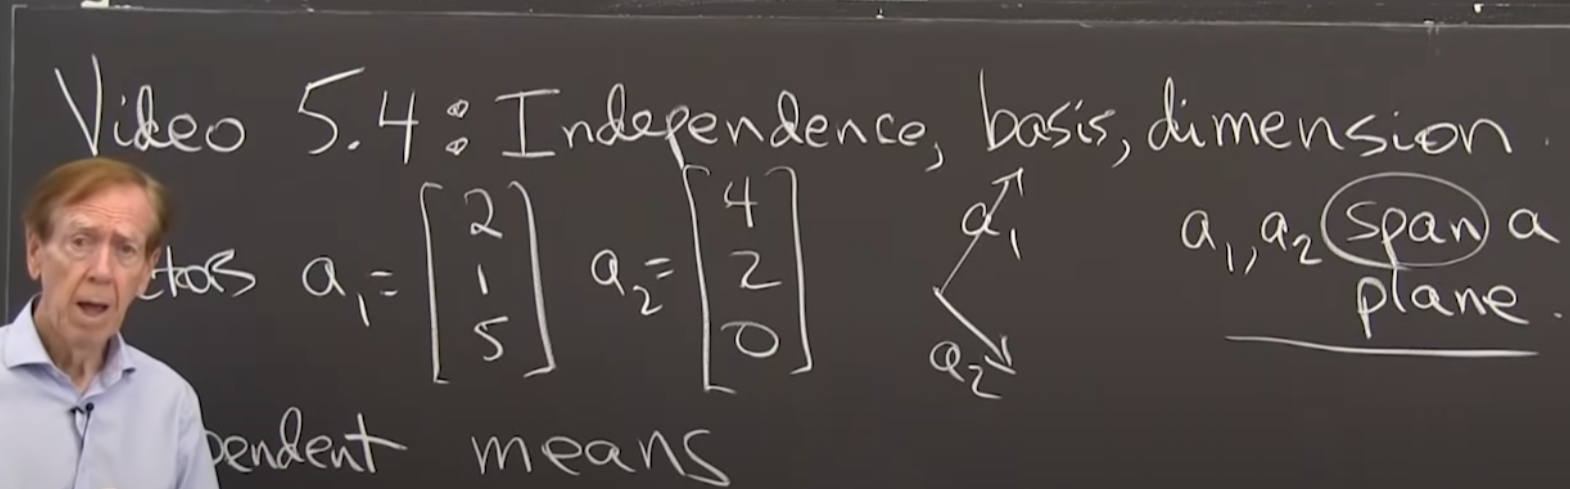 Video 5.4: Independence, basis, dimension.
a₁ = [2 1 5] a₂ = [4 2 0]
a₁
a₂
a₁, a₂ span a
plane.
means